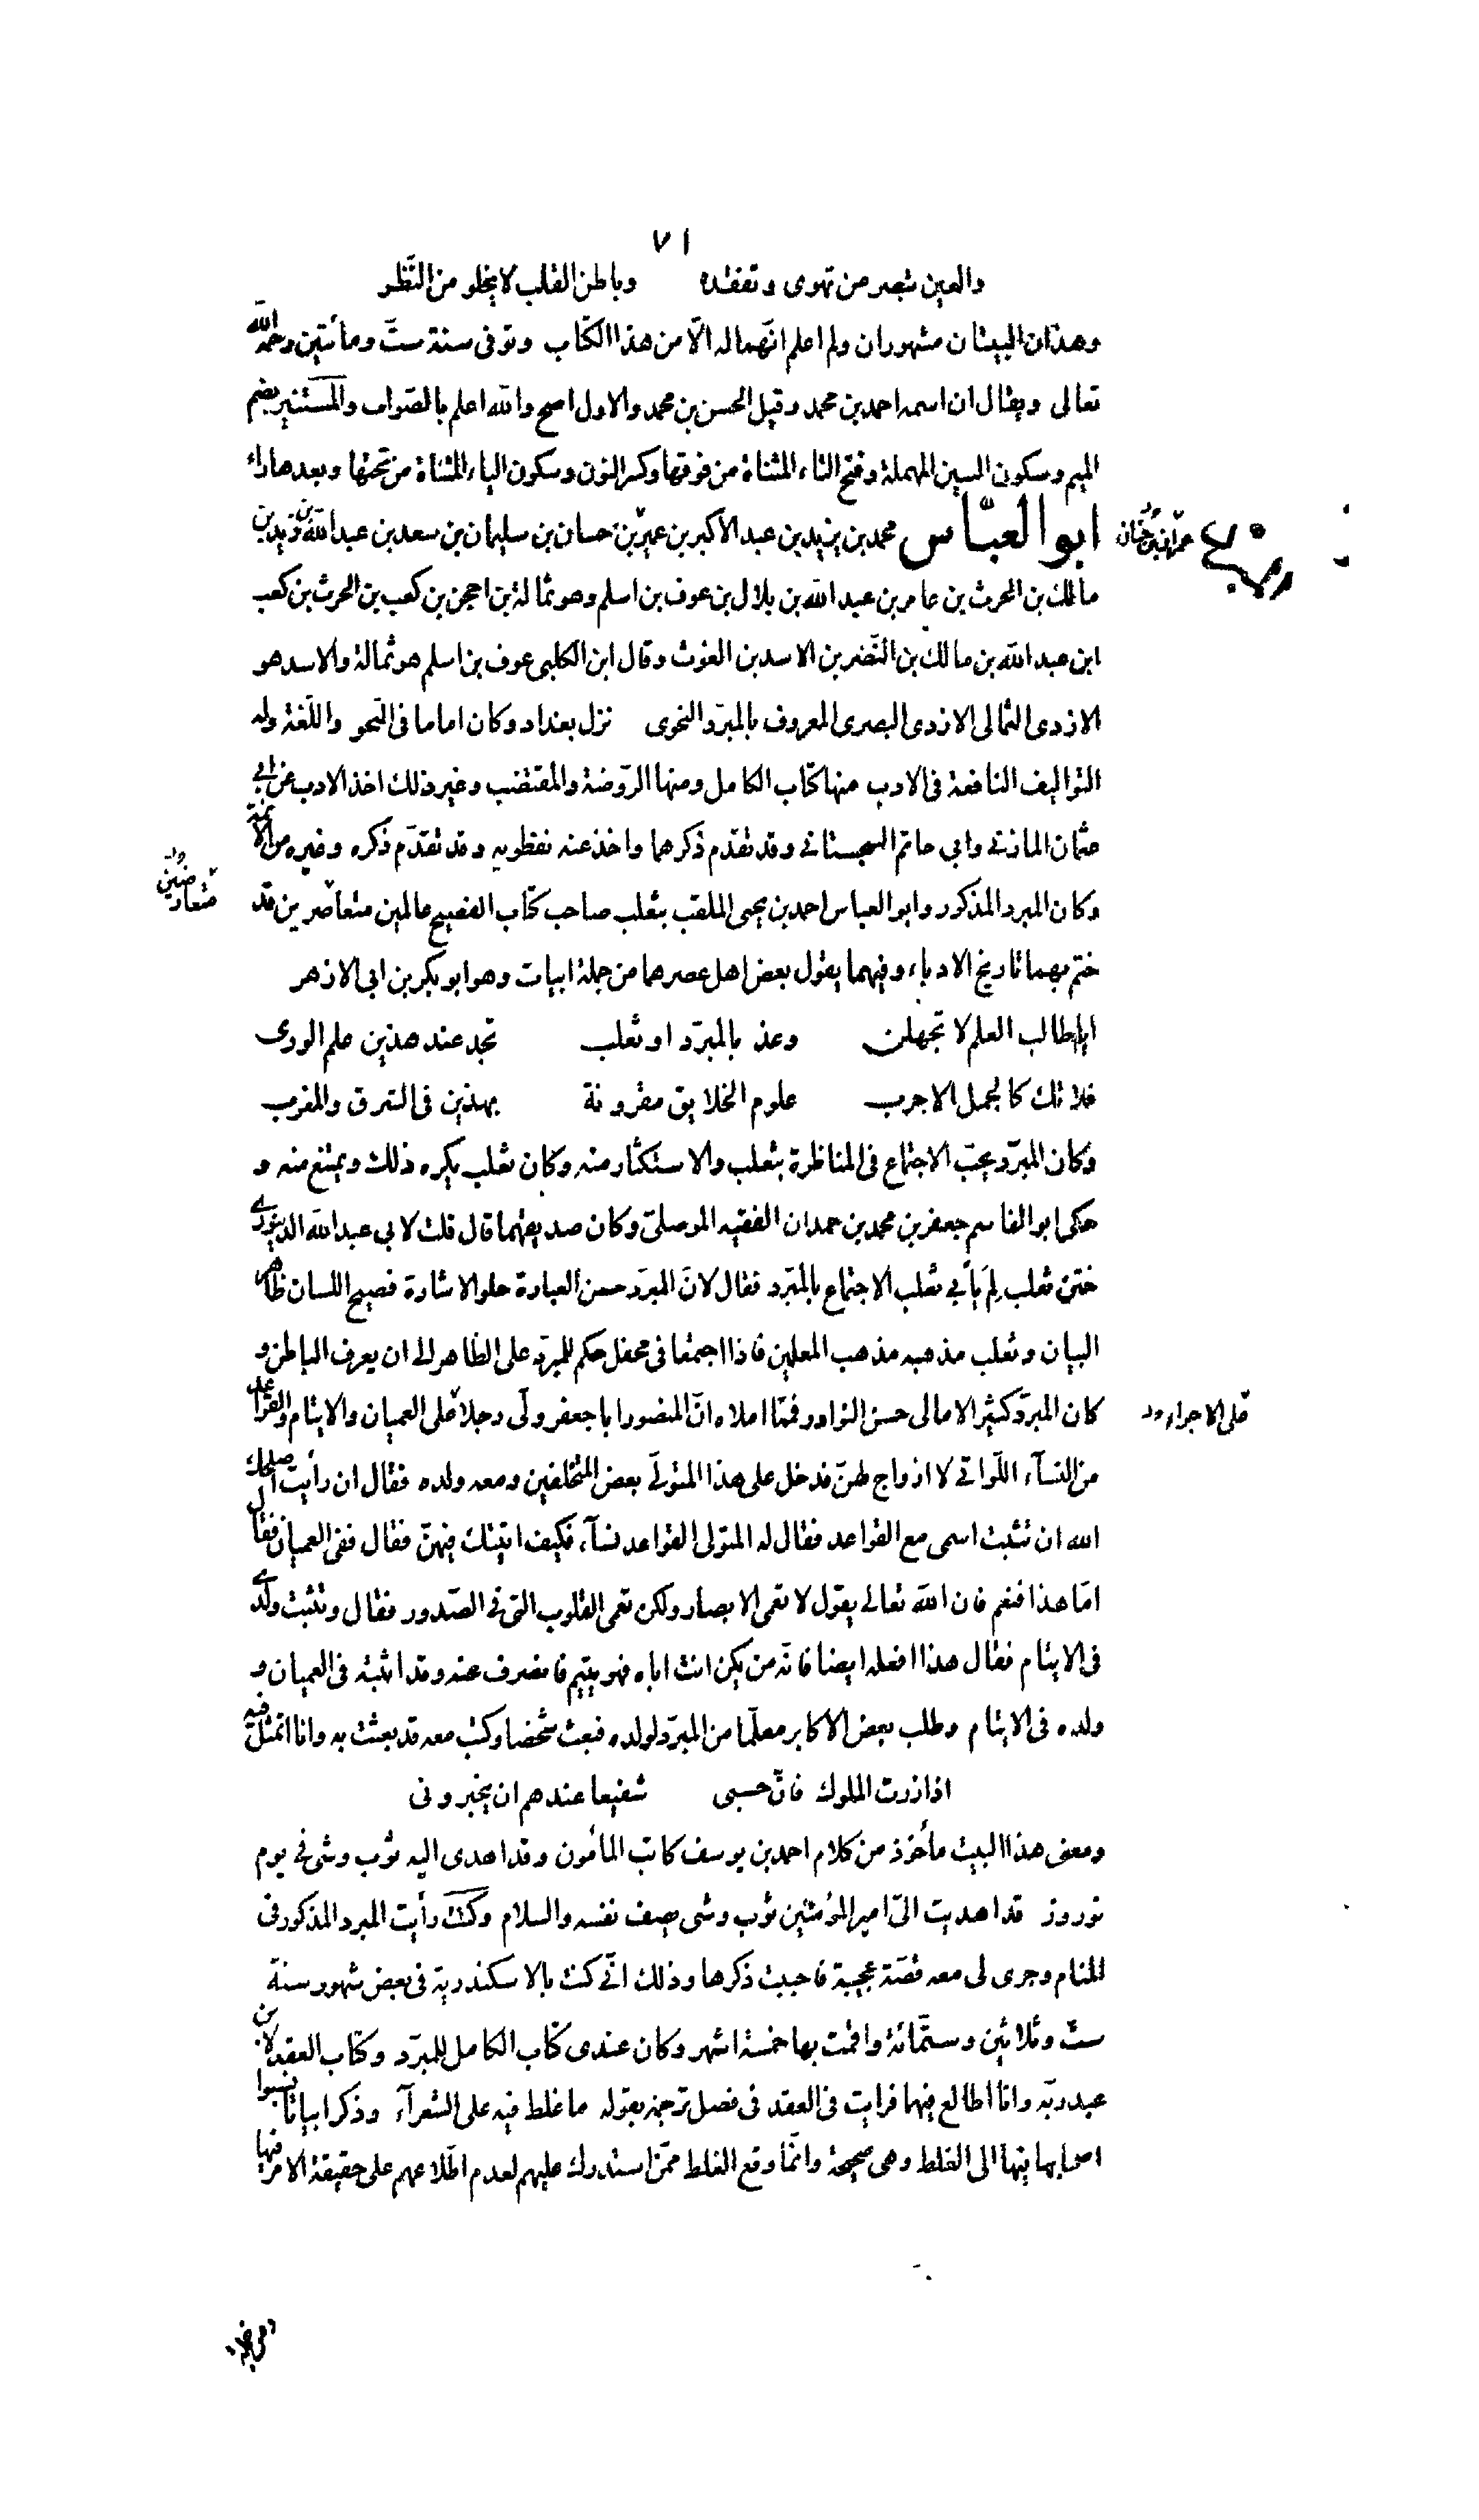 ٧١
والعين تبصر من تهوى وتفقده وباطن القلب لا يخلو من النّظر
وهذان البيتان مشهوران ولم اعلم انّهما له الّا من هذا الكتاب وتوفى سنة ستّ ومأتين رحمه الله
تعالى ويقال ان اسمه احمد بن محمد وقيل الحسن بن محمد والاول اصح والله اعلم بالصّواب والمستنير بضم
الميم وسكون السين المهملة وفتح التاء المثناة من فوقها وكسر النون وسكون الياء المثناة من تحتها وبعدها راء
ابو العبّاس محمد بن يزيد بن عبد الاكبر بن عمير بن حسان بن سليمان بن سعد بن عبد الله بن زيد بن
مالك بن الحرث بن عامر بن عبد الله بن بلال بن عوف بن اسلم وهو ثمالة بن احجن بن كعب بن الحرث بن كعب
ابن عبد الله بن مالك بن النّضر بن الاسد بن الغوث وقال ابن الكلبى عوف بن اسلم هو ثمالة والاسد هو
الازدى الثمالى الازدى البصرى المعروف بالمبرّد النحوى نزل بغداد وكان اماما فى النّحو واللّغة وله
التواليف النافعة فى الادب منها كتاب الكامل ومنها الرّوضة والمقتضب وغير ذلك اخذ الادب عن ابي
عثمان المازني وابي حاتم السجستاني وقد تقدم ذكرهما واخذ عنه نفطويه وقد تقدّم ذكره وغيره من الائمّة
وكان المبرد المذكور وابو العباس احمد بن يحيى الملقب بثعلب صاحب كتاب الفصيح عالمين متعاصرين قد
متعارضين
ختم بهما تاريخ الادباء وفيهما يقول بعض اهل عصرهما من جملة ابيات وهو ابو بكر بن ابى الازهر
ايا طالب العلم لا تجهلن وعذ بالمبرّد او ثعلب تجد عند هذين علم الورى
فلا تك كالجمل الاجرب علوم الخلايق مقرونة بهذين فى الشرق والمغرب
وكان المبرّد يحبّ الاجتماع فى المناظرة بثعلب والاستكثار منه وكان ثعلب يكره ذلك ويمتنع منه و
حكى ابو القاسم جعفر بن محمد بن حمدان الفقيه الموصلىّ وكان صديقهما قال قلت لابي عبد الله الدينوري
ختن ثعلب لِمَ يأبي ثعلب الاجتماع بالمبّرد فقال لانّ المبرّد حسن العبارة حلو الاشارة فصيح اللسان ظاهر
البيان وثعلب مذهبه مذهب المعلمين فاذا اجتمعا فى محفل حكم للمبرّد على الظاهر الى ان يعرف الباطن و
كان المبرّد كثير الامالى حسن النوادر فممّا املاه انّ المنصور ابا جعفر ولّى رجلا على العميان والايتام والقواعد
على الاجراء
من النسآء اللّواتي لا ازواج لهنّ فدخل على هذا المتولّي بعض المتخلفين ومعه ولده فقال ان رأيت اصلحك
الله ان تثبت اسمى مع القواعد فقال له المتولى القواعد نسآء فكيف اثبتك فيهنّ فقال ففى العميان فقال
امّا هذا فنعم فان الله تعالى يقول لا تعمى الابصار ولكن تعمى القلوب التى فى الصّدور فقال وتثبت ولدي
فى الايتام فقال هذا افعله ايضا فانّه من يكن انت اباه فهو يتيم فانصرف عنه وقد اثبته فى العميان و
ولده فى الايتام وطلب بعض الاكابر معلّما من المبرّد لولده فبعث شخصا وكتب معه قد بعثت به وانا اتمثل فيه
اذا زرت الملوك فانّ حسبى شفيعا عندهم ان يخبرونى
ومعنى هذا البيت مأخوذ من كلام احمد بن يوسف كاتب المأمون وقد اهدى اليه ثوب وشى في يوم
نوروز قد اهديت الىّ امير المؤمنين ثوب وشى يصف نفسه والسلام وكنت رأيت المبرد المذكور فى
المنام وجرى لى معه قصّة عجيبة فاحببت ذكرها وذلك انّي كنت بالاسكندرية فى بعض شهور سنة
ستّ وثلاثين وستّمائة واقمت بها خمسة اشهر وكان عندى كتاب الكامل للمبرّد وكتاب العقد لابن
عبد ربّه وانا اطالع فيهما فرايت فى العقد فى فصل ترجمه بقوله ما غلط فيه على الشعرآء وذكر ابياتا نسبوا
اصحابها فيها الى الغلط وهى صحيحة وانّما وقع الغلط ممّن استدرك عليهم لعدم اطّلاعهم على حقيقة الامر فيها